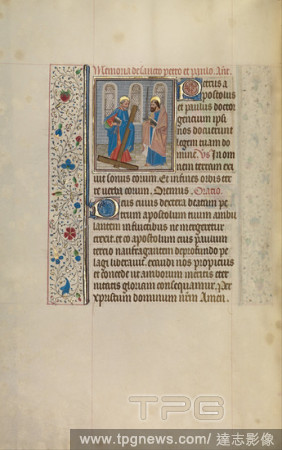 Memoria de sancto petro et paulo. Añt.
Petrus a
postolus
et paulus doctor
gencium ipsi
nos docuerunt
legem tuam do
mine. Vs In om
nem terram ex
iuit sonus eorum. Et in fines orbis ter
re verba eorum. Oremus. Oratio.
Deus cuius dextera beatum pe
trum apostolum tuum ambu
lantem in fluctibus ne mergeretur
erexit. et co apostolum eius paulum
tercio naufragantem de profundo pe
lagi liberauit. exaudi nos propicius
et concede ut amborum meritis eter
nitatis gloriam consequamur. Per
xpristum dominum nr̃m Amen.
TPG
www.tpgnews.com/ 達志影像